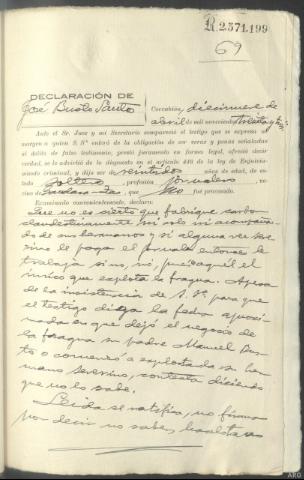 R.2371.199
69
DECLARACIÓN DE
José Busto Santo
Corcubión, diecinueve de
abril de mil novecientos treinta y
Ante el Sr. Juez y mi Secretario compareció el testigo que se expresa al
margen a quien S. Sª enteró de la obligación de ser veraz y penas señaladas
al delito de falso testimonio, prestó juramento en forma legal, ofreció decir
verdad, se le advirtió de lo dispuesto en el artículo 446 de la ley de Enjuicia-
miento criminal, y dijo ser de veintidós años de edad, de es-
tado soltero, profesión jornalero, ve-
cino de que no fué procesado.
Examinado convenientemente, declara:
Que no es cierto que fabrique carbón
clandestinamente, ni solo ni acompaña-
do de sus hermanos y si alguna vez Se-
verino le paga el jornal entonces le
trabaja sino, no, pues aquél el
único que explota la fragua. A pesar
de la insistencia de S. Sª para que
el testigo diga la fecha aproxi-
mada en que dejó el negocio de
la fragua su padre Manuel Bus-
to o comenzó a explotarla su her-
mano Severino, contesta diciendo
que no lo sabe.
Leída se ratifica, no firma
por decir no saber, hácelo
ARG